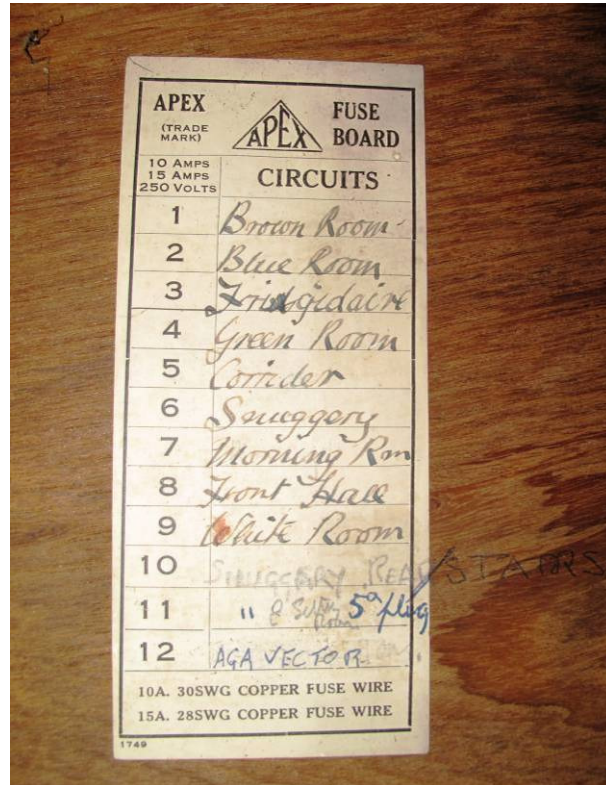 APEX
(TRADE
MARK)
APEX
FUSE
BOARD
10 AMPS
15 AMPS
250 VOLTS
CIRCUITS
1 Brown Room
2 Blue Room
3 Fridgidaire
4 Green Room
5 Corrider
6 Snuggery
7 Morning Rm
8 Front Hall
9 White Room
10 SNUGGERY REAR/STAIRS
11 " & 5a plug
12 AGA VECTOR
10A. 30SWG COPPER FUSE WIRE
15A. 28SWG COPPER FUSE WIRE
1749